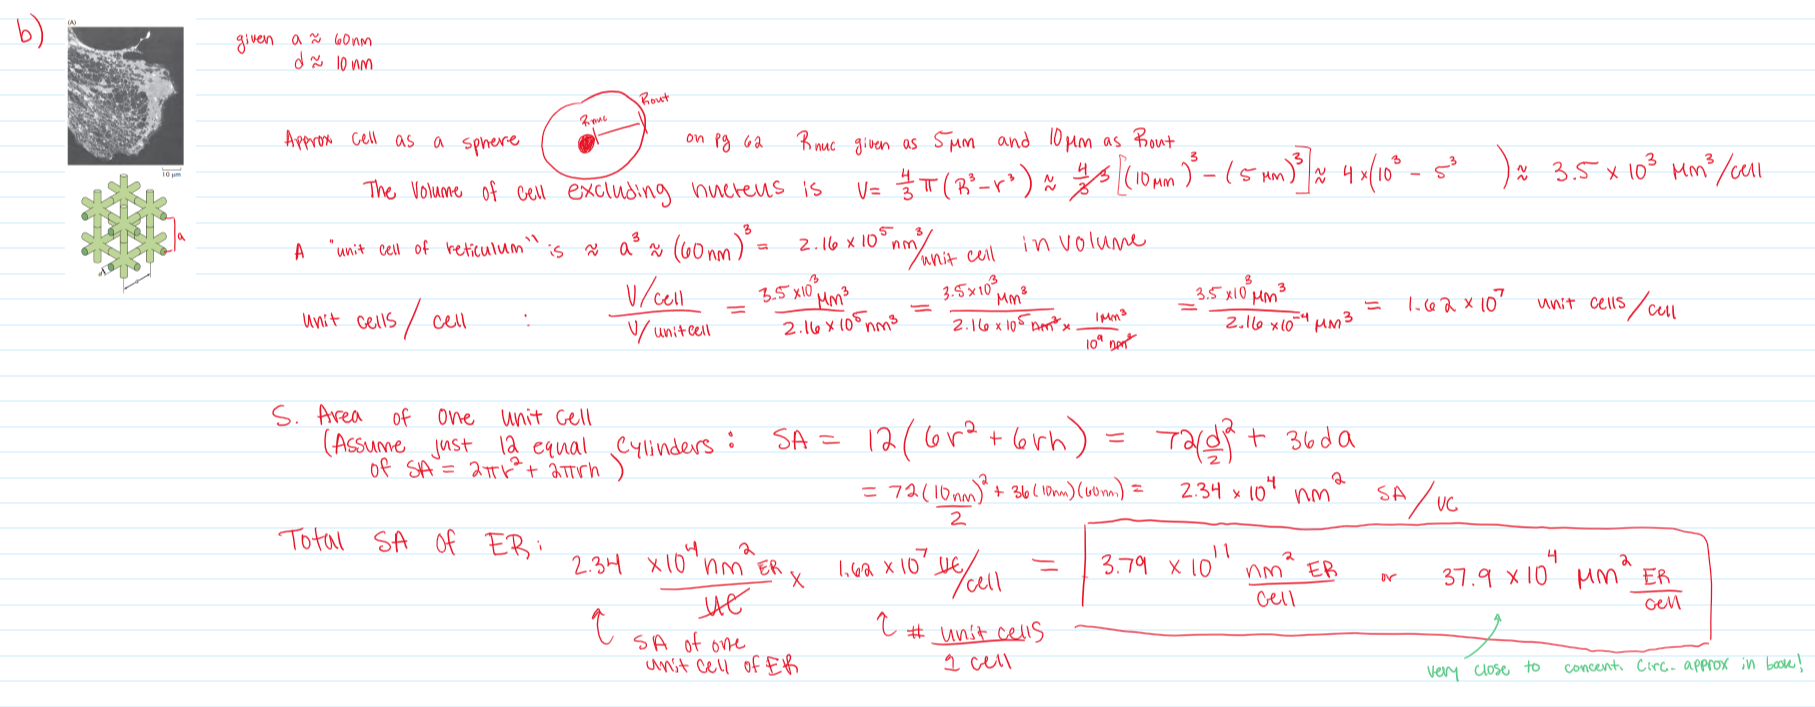 b)
(A)
10 μm
a
d
given a ≈ 60nm
d ≈ 10nm
Approx cell as a sphere
Rnuc
Rout
on pg 62 Rnuc given as 5μm and 10μm as Rout
The Volume of cell excluding nucleus is V = 4/3 π (R³ - r³) ≈ 4/3 3 [(10μm)³ - (5μm)³] ≈ 4 × (10³ - 5³) ≈ 3.5 × 10³ μm³/cell
A "unit cell of reticulum" is ≈ a³ ≈ (60nm)³ = 2.16 × 10⁵ nm³/unit cell in volume
unit cells/cell : V/cell / V/unit cell = 3.5 × 10³ μm³ / 2.16 × 10⁵ nm³ = 3.5 × 10³ μm³ / 2.16 × 10⁵ nm³ × 1μm³ / 10⁹ nm³ = 3.5 × 10³ μm³ / 2.16 × 10⁻⁴ μm³ = 1.62 × 10⁷ unit cells/cell
S. Area of one unit cell
(Assume just 12 equal cylinders : SA = 12(6r² + 6rh) = 72(d/2)² + 36da
of SA = 2πr² + 2πrh)
= 72(10nm/2)² + 36(10nm)(60nm) = 2.34 × 10⁴ nm² SA/UC
Total SA of ER:
2.34 × 10⁴ nm² ER / UC × 1.62 × 10⁷ UC/cell = 3.79 × 10¹¹ nm² ER / cell or 37.9 × 10⁴ μm² ER / cell
SA of one
unit cell of ER
# unit cells / 1 cell
very close to concent. circ. approx in book!